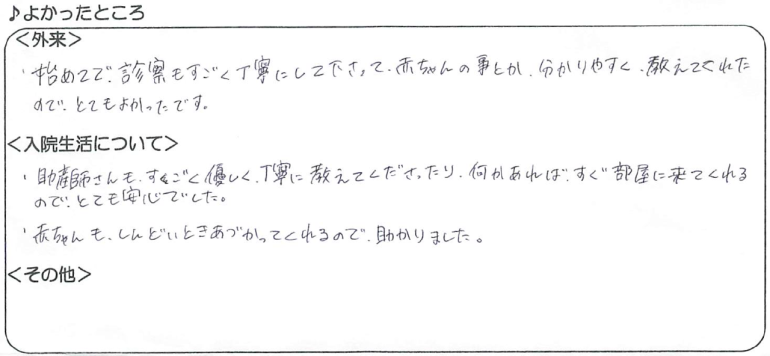 ♪よかったところ
<外来>
・始めてで、診察もすごく丁寧にして下さって、赤ちゃんの事とか、分かりやすく、教えてくれた
ので、とてもよかったです。
<入院生活について>
・助産師さんも、すごく優しく、丁寧に教えてくださったり、何かあれば、すぐ部屋に来てくれる
ので、とても安心でした。
・赤ちゃんも、しんどいときあづかってくれるので、助かりました。
<その他>